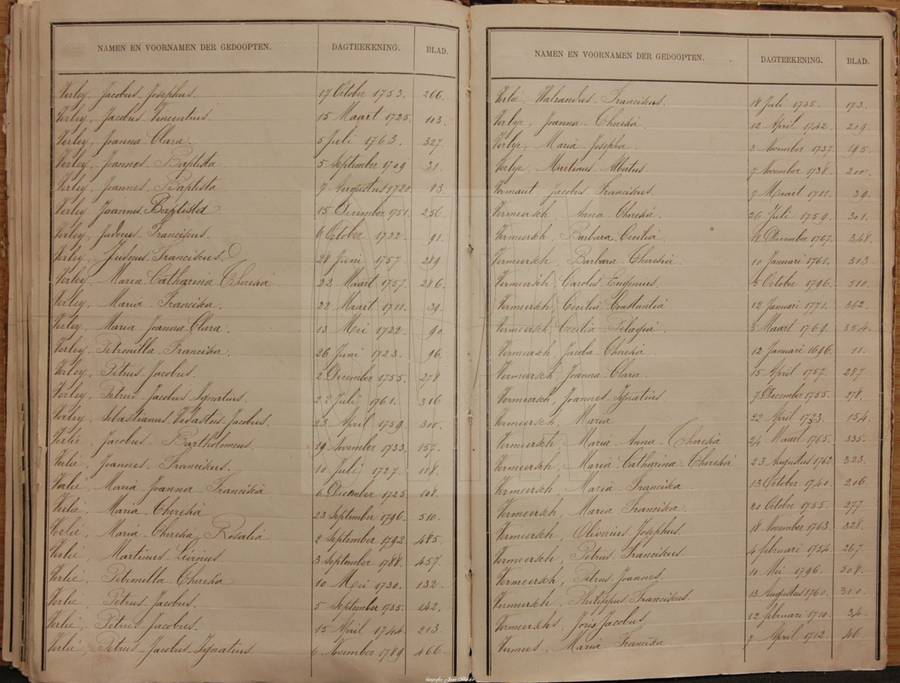 NAMEN EN VOORNAMEN DER GEDOOPTEN. DAGTEEKENING. BLAD.
Verley, Jacobus Josephus. 17 October 1753. 266.
Verley, Jacobus Vincentius 15 Maart 1725. 103.
Verley, Joanna Clara. 5 Juli 1763. 327.
Verley, Joannes Baptista 5 September 1709 31.
Verley, Joannes Baptista 7 Augustus 1720. 83.
Verley, Joannes Baptista 15 December 1751. 256.
Verley, Judocus Franciscus. 6 October 1722. 91.
Verley, Judocus Franciscus 28 Juni 1757 289
Verley, Maria Catharina Theresia 22 Maart 1757. 286.
Verley, Maria Franciska. 22 Maart 1711. 39.
Verley, Maria Joanna Clara. 13 Mei 1722. 90.
Verley, Petronilla Franciska. 26 Juni 1723. 96.
Verley, Petrus Jacobus. 2 December 1755. 278.
Verley, Petrus Jacobus Ignatius 22 Juli 1761. 316
Verley, Sebastianus Vedastus Jacobus. 23 April 1759. 300.
Verlie, Jacobus Bartholomeus. 29 November 1733. 157.
Verlie, Joannes Franciscus. 10 Juli 1727. 118.
Verlie, Maria Joanna Franciska 6 December 1725 108.
Verlie, Maria Theresia 23 September 1796. 510.
Verlie, Maria Theresia Rosalia 2 September 1792. 485.
Verlie, Martinus Livinus 3 September 1788. 457.
Verlie, Petronilla Theresia 10 Mei 1730. 132.
Verlie, Petrus Jacobus. 5 September 242.
Verlie, Petrus Jacobus. 15 April 1744. 213.
Verlie, Petrus Jacobus Ignatius 6 November 1789 466.
NAMEN EN VOORNAMEN DER GEDOOPTEN. DAGTEEKENING. BLAD.
Franciscus. 18 Juli 1735. 173.
Joanna Theresia. 12 April 1742. 209.
Maria Josepha. November 1737. 195.
Martinus 7 November 1738. 200.
Vermaut Jacobus Franciscus. 9 Maart 1711. 39.
Vermeersch, Anna Theresia. 26 Juli 1759. 301.
Vermeersch, Barbara Cecilia 16 December 1767. 348.
Vermeersch, Barbara Theresia 10 Januari 1761. 313.
Vermeersch, Carolus Eugenius. 5 October 1796. 510.
Vermeersch, Cecilia Constantia 12 Januari 1771. 362.
Vermeersch, Cecilia Pelagia. 8 Maart 1769. 354.
Vermeersch, Jacoba Theresia. 12 Januari 1696. 11.
Vermeersch, Joanna Clara. 15 April 1757. 287.
Vermeersch, Joannes Ignatius 7 December 1755. 278.
Vermeersch, Maria 22 April 254.
Vermeersch, Maria Anna Theresia 24 Maart 1765. 335.
Vermeersch, Maria Catharina Theresia 23 Augustus 1762 323.
Vermeersch, Maria Franciska 13 October 1740. 206.
Vermeersch, Maria Franciska. 20 October 1755. 277.
Vermeersch, Oliverius Josephus. 18 November 1763. 328.
Vermeersch, Petrus Franciscus 4 februari 1754. 267.
Vermeersch, Petrus Joannes. 10 Mei 1796. 508.
Vermeersch, Philippus Franciscus. 13 Augustus 1760. 310.
Vermeersch, Joris Jacobus. 12 februari 1710. 34.
Vermees, Maria Franciska 9 April 1712. 46.